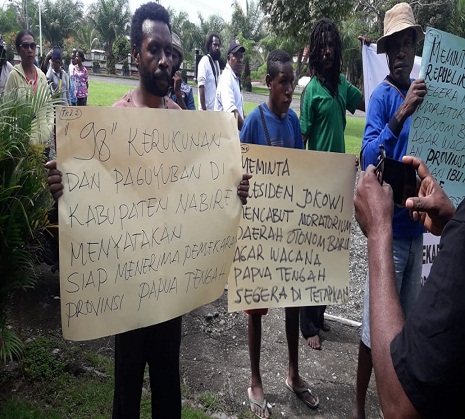 "98" KERUKUNAN
DAN PAGUYUBAN DI
KABUPATEN NABIRE
MENYATAKAN
SIAP MENERIMA PEMEKARAN
PROVINSI PAPUA TENGAH
MEMINTA
PRESIDEN JOKOWI
MENCABUT MORATORIUM
DAERAH OTONOM BARU
AGAR WACANA
PAPUA TENGAH
SEGERA DI TETAPKAN
MEMINTA
REPUBLIK
SEGERA
MORATORIUM
DAERAH
AGAR WACANA
PROVINSI